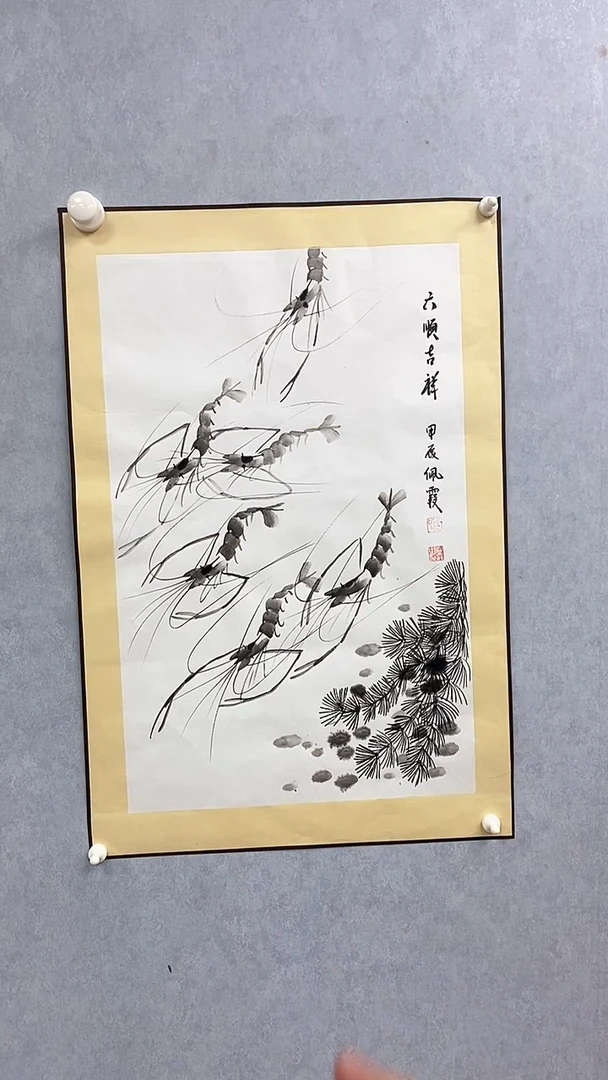 六順吉祥
甲辰佩霞